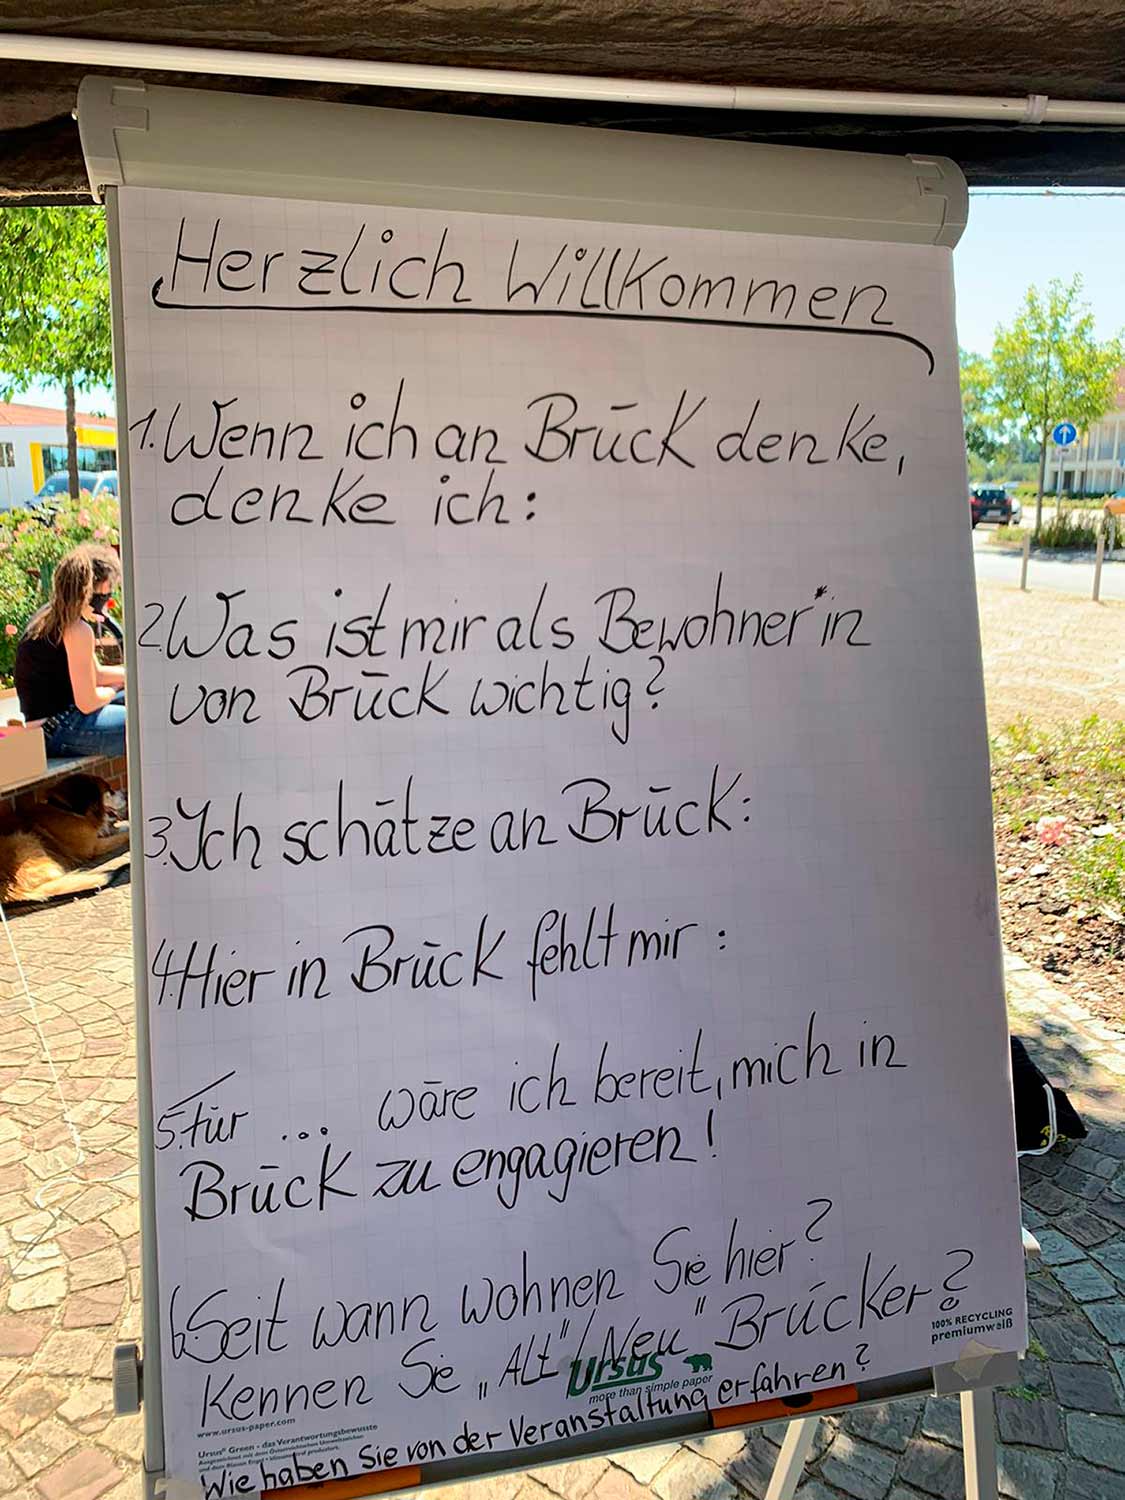 Herzlich Willkommen
1. Wenn ich an Brück denke,
denke ich:
2. Was ist mir als Bewohner*in
von Brück wichtig?
3. Ich schätze an Brück:
4. Hier in Brück fehlt mir :
5. Für ... wäre ich bereit, mich in
Brück zu engagieren!
6. Seit wann wohnen Sie hier?
Kennen Sie „Alt"/„Neu" Brücker?
100% RECYCLING
premiumweiß
Ursus
more than simple paper
www.ursus-paper.com
Ursus® Green - das Verantwortungsbewusste
Wie haben Sie von der Veranstaltung erfahren?